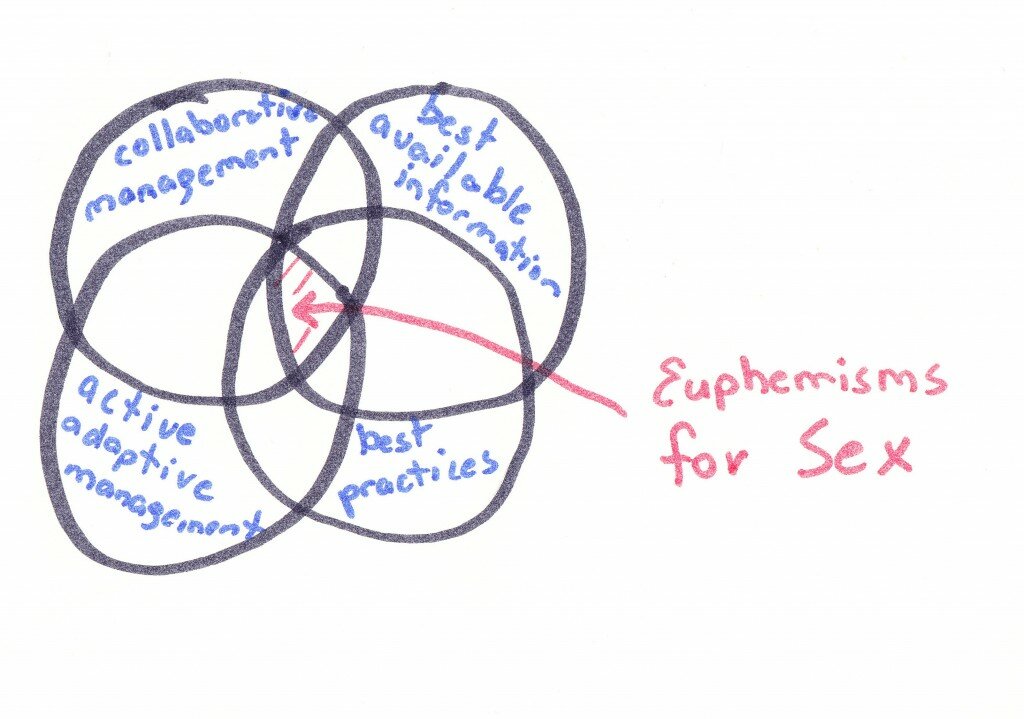 collaborative
management
best
available
information
active
adaptive
management
best
practices
Euphemisms
for Sex